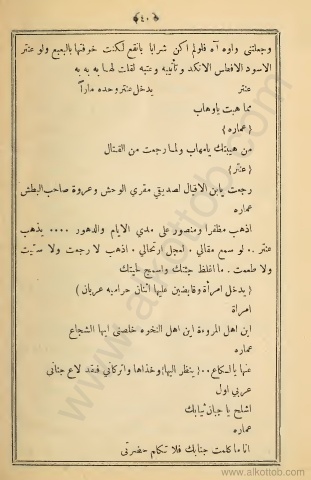 ﴿٤٠﴾
وجعلتنى واوه آه فلولم اكن شرابا بانقع لكنت خوفتها بالبعبع ولو عنتر
الاسود الافطس الانكد وتأتيه وعتبه لقلت لهـا به به به
عنتر يدخل عنتر وحده ماراً
مما هبت ياوهاب
{عماره}
من هيبتك يامهاب ولما رجعت من القتال
{عنتر}
رجعت يابن الاقبال لصديقي مقري الوحش وعروة صاحب البطش
عماره
اذهب مظفرا ومنصور على مدي الايام والدهور .... يذهب
عنتر .. لو سمع مقالي . لعجل ارتحالي . اذهب لا رجعت ولا سقيت
ولا طعمت . ما اغلظ جثتك واسمج حليتك
( يدخل امرأة وقابضين عليها اثنان حراميه عربان )
امراة
اين اهل المروءة اين اهل النخوه خلصنى ايها الشجاع
عماره
عنها يالـكاع ..{ينظر اليها} وخذاها واتركانى فقد لاع جنانى
عربي اول
اشلح يا جبان ثيابك
عماره
انا ما كلمت جنابك فلا تتكلم حضرتى
www.alkottob.com
www.alkottob.com